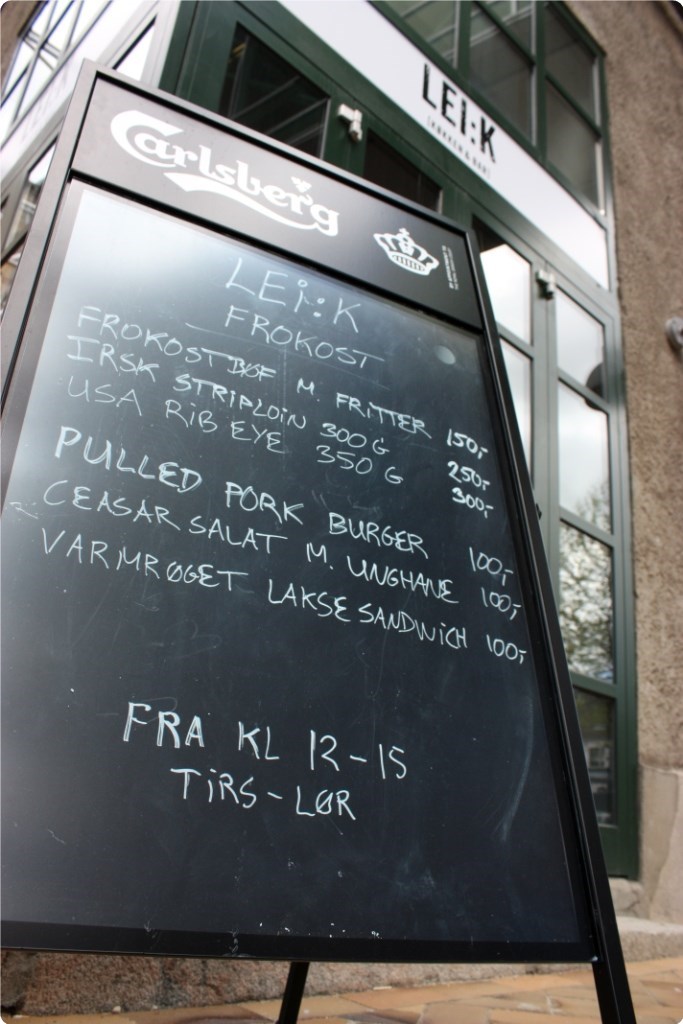 LEI:K
KØKKEN & BAR
Carlsberg
LEI:K
FROKOST
FROKOSTBØF M. FRITTER 150,-
IRSK STRIPLOIN 300 G 250,-
USA RIB EYE 350 G 300,-
PULLED PORK BURGER 100,-
CEASAR SALAT M. UNGHANE 100,-
VARMRØGET LAKSESANDWICH 100,-
FRA KL 12-15
TIRS-LØR